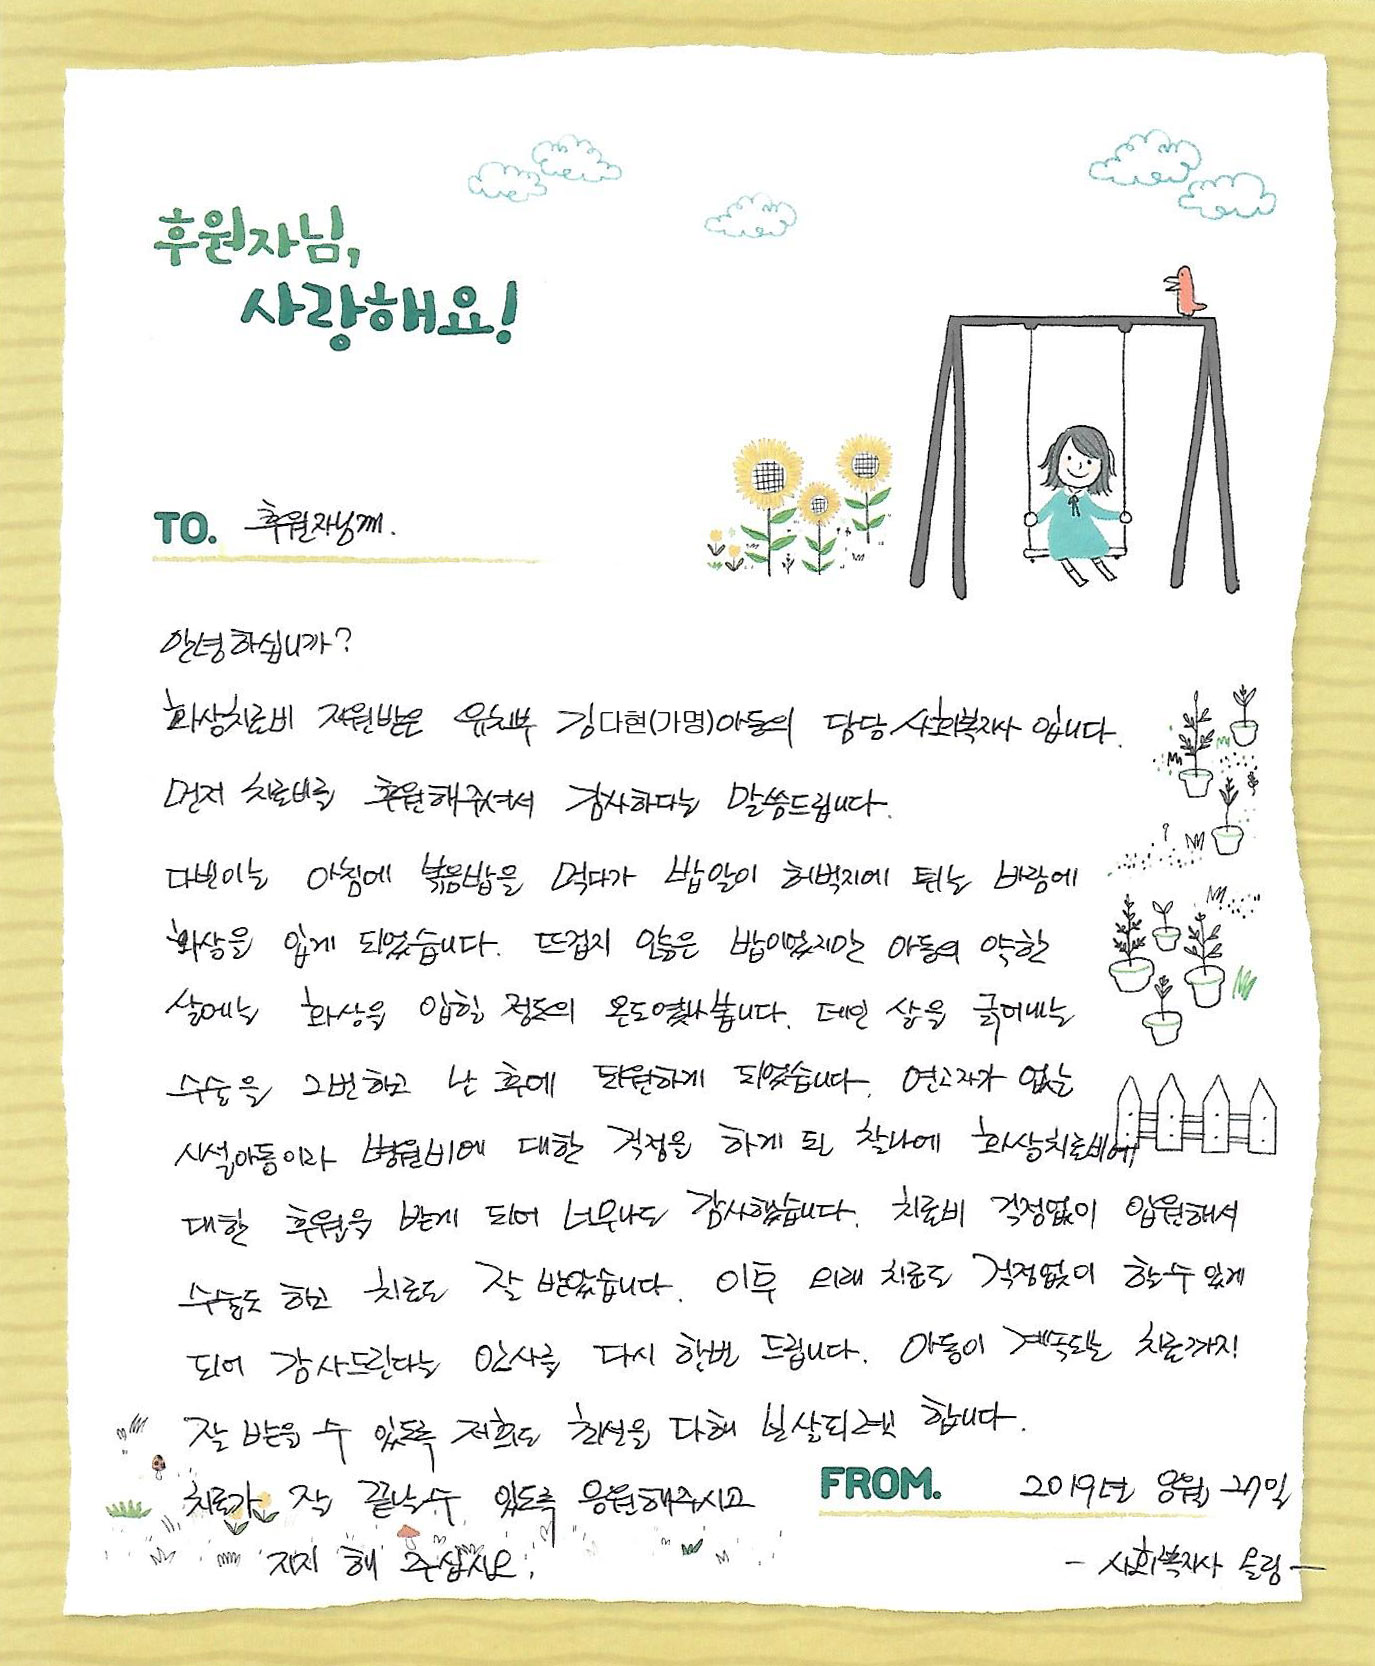 후원자님,
사랑해요!
TO. 후원자님께.
안녕하십니까?
화상치료비 지원받은 유치부 김다현(가명)아동의 담당 사회복지사 입니다.
먼저 치료비를 후원해주셔서 감사하다는 말씀드립니다.
다현이는 아침에 볶음밥을 먹다가 밥알이 허벅지에 튀는 바람에
화상을 입게 되었습니다. 뜨겁지 않은 밥이었지만 아동의 약한
살에는 화상을 입힐 정도의 온도였나봅니다. 데인 살을 긁어내는
수술을 2번하고 난 후에 퇴원하게 되었습니다. 연고자가 없는
시설아동이라 병원비에 대한 걱정을 하게 된 찰나에 화상치료비에
대한 후원을 받게 되어 너무나도 감사했습니다. 치료비 걱정없이 입원해서
수술도 하고 치료도 잘 받았습니다. 이후 외래 치료도 걱정없이 할수 있게
되어 감사드린다는 인사를 다시 한번 드립니다. 아동이 계속되는 치료까지
잘 받을 수 있도록 저희도 최선을 다해 보살피려 합니다.
치료가 잘 끝날수 있도록 응원해주시고
지지 해 주십시오.
FROM. 2019년 27일
- 사회복지사 올림 -